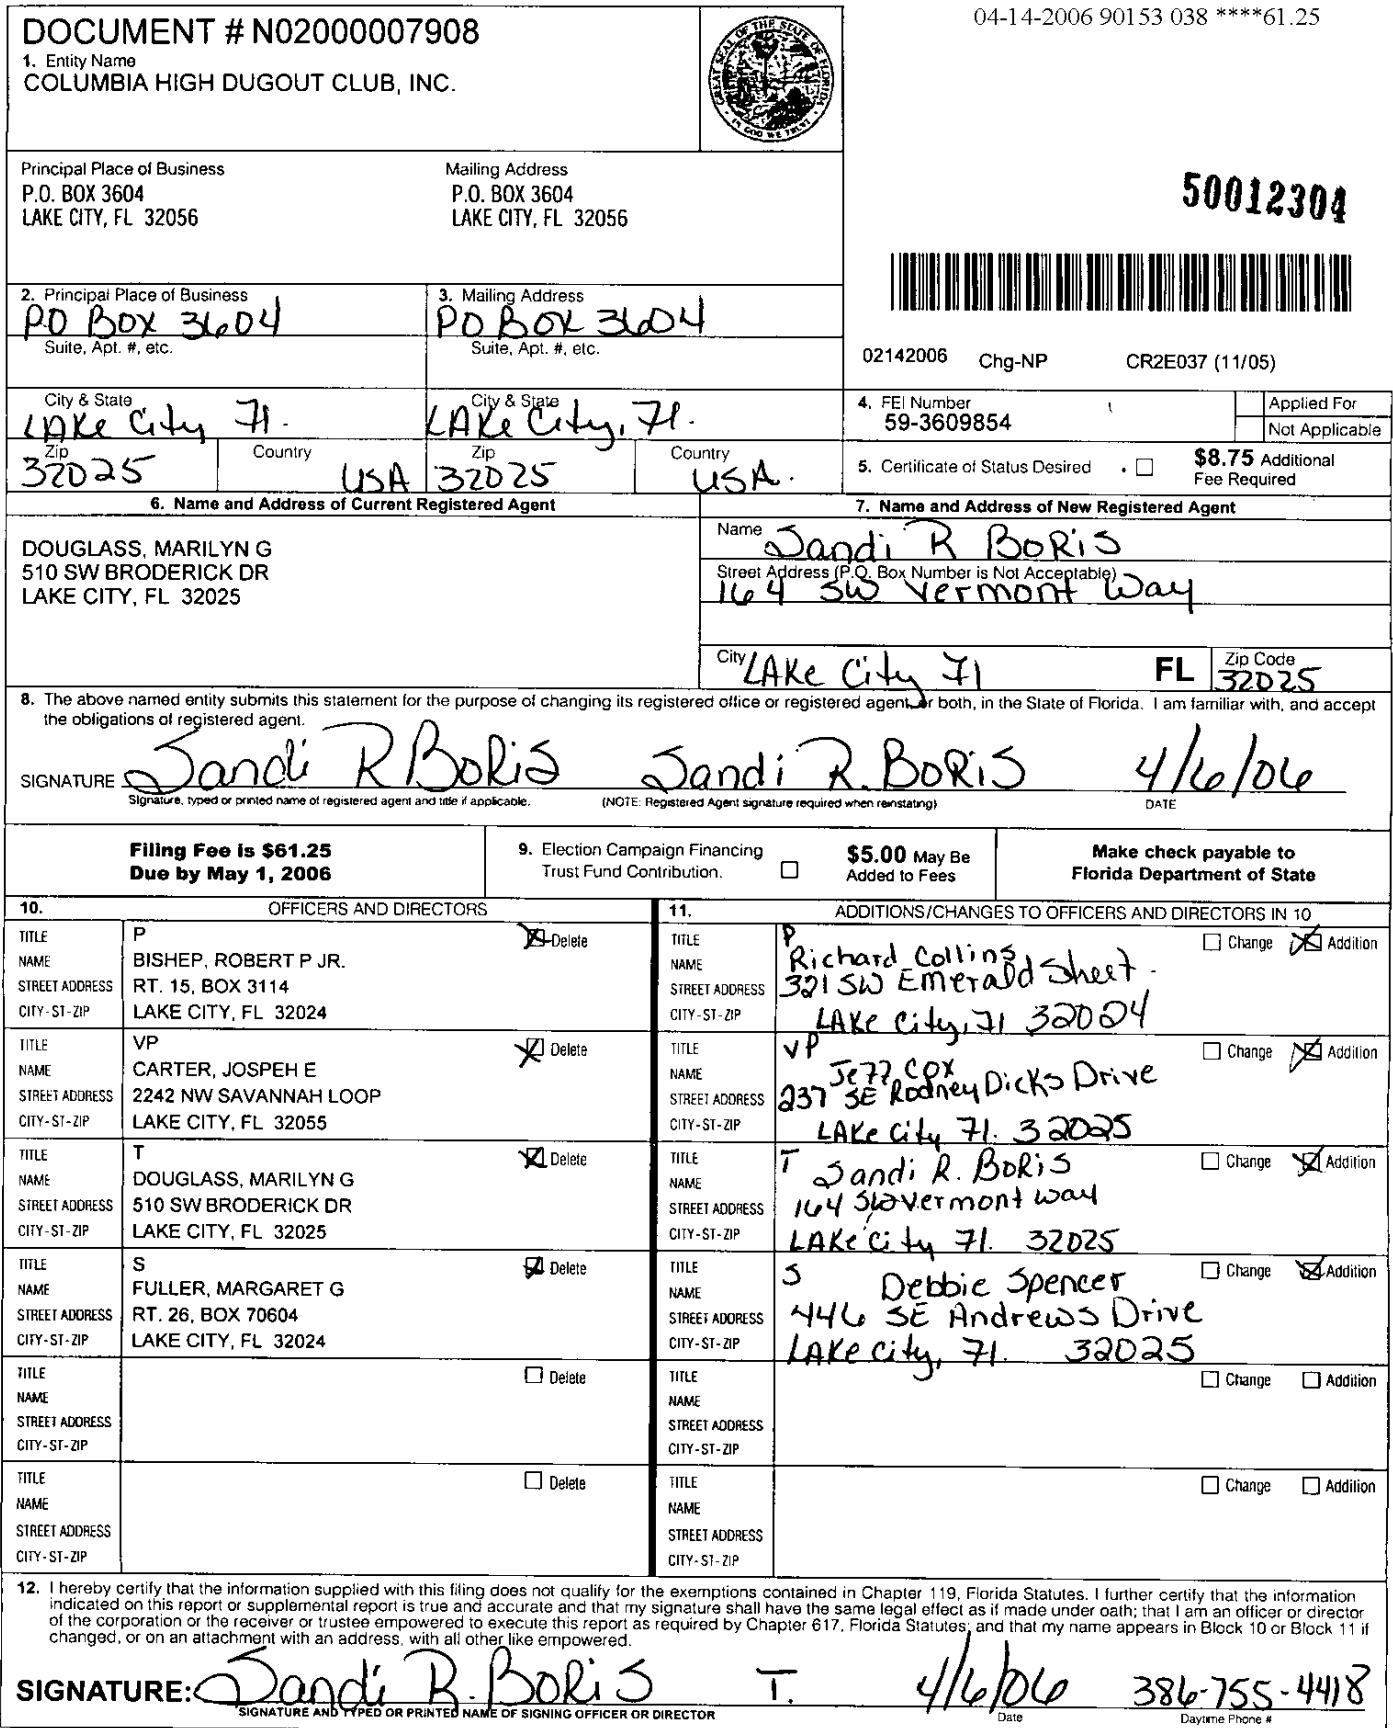 04-14-2006 90153 038 ****61.25
DOCUMENT # N02000007908
1. Entity Name
COLUMBIA HIGH DUGOUT CLUB, INC.
GREAT SEAL OF THE STATE OF FLORIDA
IN GOD WE TRUST
Principal Place of Business
P.O. BOX 3604
LAKE CITY, FL 32056
Mailing Address
P.O. BOX 3604
LAKE CITY, FL 32056
50012304
2. Principal Place of Business
PO BOX 3604
Suite, Apt. #, etc.
3. Mailing Address
PO BOX 3604
Suite, Apt. #, etc.
02142006 Chg-NP CR2E037 (11/05)
City & State
LAKe City Fl.
City & State
LAKe City, Fl.
Zip
32025
Country
USA
Zip
32025
Country
USA.
4. FEI Number
59-3609854
Applied For
Not Applicable
5. Certificate of Status Desired
$8.75 Additional
Fee Required
6. Name and Address of Current Registered Agent
DOUGLASS, MARILYN G
510 SW BRODERICK DR
LAKE CITY, FL 32025
7. Name and Address of New Registered Agent
Name Sandi R BORiS
Street Address (P.O. Box Number is Not Acceptable)
164 SW Vermont Way
City LAKe City Fl FL
Zip Code
32025
8. The above named entity submits this statement for the purpose of changing its registered office or registered agent, or both, in the State of Florida. I am familiar with, and accept
the obligations of registered agent.
SIGNATURE Sandi R BoRiS Sandi R. BORiS 4/6/06
Signature, typed or printed name of registered agent and title if applicable. (NOTE: Registered Agent signature required when reinstating) DATE
Filing Fee is $61.25
Due by May 1, 2006
9. Election Campaign Financing
Trust Fund Contribution.
$5.00 May Be
Added to Fees
Make check payable to
Florida Department of State
10. OFFICERS AND DIRECTORS
TITLE P Delete
NAME BISHEP, ROBERT P JR.
STREET ADDRESS RT. 15, BOX 3114
CITY-ST-ZIP LAKE CITY, FL 32024
TITLE VP Delete
NAME CARTER, JOSPEH E
STREET ADDRESS 2242 NW SAVANNAH LOOP
CITY-ST-ZIP LAKE CITY, FL 32055
TITLE T Delete
NAME DOUGLASS, MARILYN G
STREET ADDRESS 510 SW BRODERICK DR
CITY-ST-ZIP LAKE CITY, FL 32025
TITLE S Delete
NAME FULLER, MARGARET G
STREET ADDRESS RT. 26, BOX 70604
CITY-ST-ZIP LAKE CITY, FL 32024
TITLE Delete
NAME
STREET ADDRESS
CITY-ST-ZIP
TITLE Delete
NAME
STREET ADDRESS
CITY-ST-ZIP
11. ADDITIONS/CHANGES TO OFFICERS AND DIRECTORS IN 10
TITLE P Change Addition
NAME Richard Collins
STREET ADDRESS 321 SW Emerald Street.
CITY-ST-ZIP LAKe City, Fl 32024
TITLE VP Change Addition
NAME Jeff Cox
STREET ADDRESS 237 SE Rodney Dicks Drive
CITY-ST-ZIP LAKe City Fl. 32025
TITLE T Change Addition
NAME Sandi R. BORiS
STREET ADDRESS 164 SW Vermont Way
CITY-ST-ZIP LAKe City Fl. 32025
TITLE S Change Addition
NAME Debbie Spencer
STREET ADDRESS 446 SE Andrews Drive
CITY-ST-ZIP LAKe City, Fl. 32025
TITLE Change Addition
NAME
STREET ADDRESS
CITY-ST-ZIP
TITLE Change Addition
NAME
STREET ADDRESS
CITY-ST-ZIP
12. I hereby certify that the information supplied with this filing does not qualify for the exemptions contained in Chapter 119, Florida Statutes. I further certify that the information
indicated on this report or supplemental report is true and accurate and that my signature shall have the same legal effect as if made under oath; that I am an officer or director
of the corporation or the receiver or trustee empowered to execute this report as required by Chapter 617, Florida Statutes; and that my name appears in Block 10 or Block 11 if
changed, or on an attachment with an address, with all other like empowered.
SIGNATURE: Sandi R. BoRiS T. 4/6/06 386-755-4418
SIGNATURE AND TYPED OR PRINTED NAME OF SIGNING OFFICER OR DIRECTOR Date Daytime Phone #